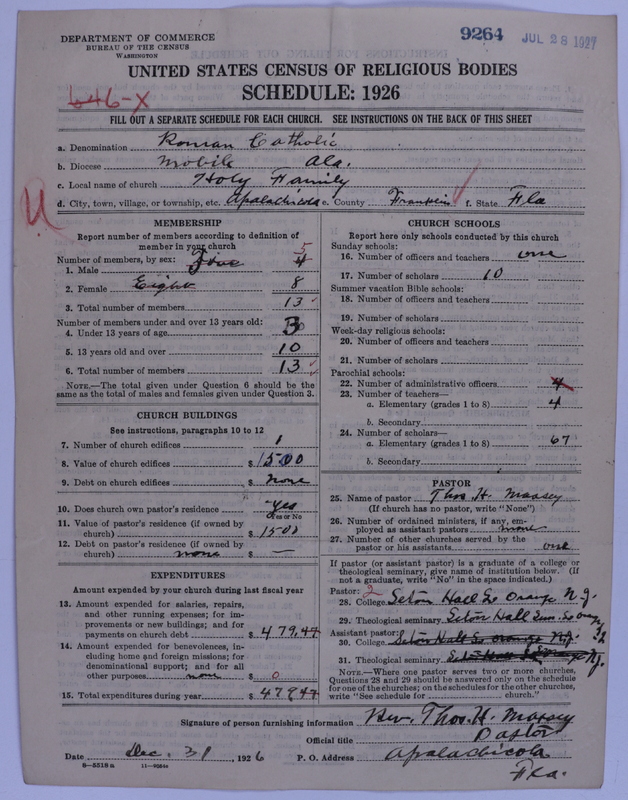 DEPARTMENT OF COMMERCE
BUREAU OF THE CENSUS
WASHINGTON
9264 JUL 28 1927
UNITED STATES CENSUS OF RELIGIOUS BODIES
SCHEDULE: 1926
646-X
FILL OUT A SEPARATE SCHEDULE FOR EACH CHURCH. SEE INSTRUCTIONS ON THE BACK OF THIS SHEET
a. Denomination Roman Catholic
b. Diocese Mobile Ala.
c. Local name of church Holy Family
d. City, town, village, or township, etc. Apalachicola e. County Franklin f. State Fla
MEMBERSHIP
Report number of members according to definition of
member in your church
Number of members, by sex: 5
1. Male Five 4
2. Female Eight 8
3. Total number of members 13
Number of members under and over 13 years old:
4. Under 13 years of age 3
5. 13 years old and over 10
6. Total number of members 13
NOTE.—The total given under Question 6 should be
same as the total of males and females given under Question 3.
CHURCH BUILDINGS
See instructions, paragraphs 10 to 12
7. Number of church edifices 1
8. Value of church edifices $ 1500
9. Debt on church edifices $ none
10. Does church own pastor's residence Yes
Yes or No
11. Value of pastor's residence (if owned by
church) $ 1500
12. Debt on pastor's residence (if owned by
church) none $ —
EXPENDITURES
Amount expended by your church during last fiscal year
13. Amount expended for salaries, repairs,
and other running expenses; for im-
provements or new buildings; and for
payments on church debt $ 479.47
14. Amount expended for benevolences, in-
cluding home and foreign missions; for
denominational support; and for all
other purposes none $ 0
15. Total expenditures during year $ 479.47
CHURCH SCHOOLS
Report here only schools conducted by this church
Sunday schools:
16. Number of officers and teachers one
17. Number of scholars 10
Summer vacation Bible schools:
18. Number of officers and teachers
19. Number of scholars
Week-day religious schools:
20. Number of officers and teachers
21. Number of scholars
Parochial schools:
22. Number of administrative officers 4
23. Number of teachers—
a. Elementary (grades 1 to 8) 4
b. Secondary
24. Number of scholars—
a. Elementary (grades 1 to 8) 67
b. Secondary
PASTOR
25. Name of pastor Thos. H. Massey
(If church has no pastor, write "None")
26. Number of ordained ministers, if any, em-
ployed as assistant pastors none
27. Number of other churches served by the
pastor or his assistants one
If pastor (or assistant pastor) is a graduate of a college or
theological seminary, give name of institution below. (If
not a graduate, write "No" in the space indicated.)
Pastor: 2
28. College Seton Hall So Orange N.J.
29. Theological seminary Seton Hall Sem. So Orange
Assistant pastor:
30. College Seton Hall So Orange N.J.
31. Theological seminary Seton Hall So Orange N.J.
NOTE.—Where one pastor serves two or more churches,
Questions 28 and 29 should be answered only on the schedule
for one of the churches; on the schedules for the other churches,
write "See schedule for church."
Signature of person furnishing information Rev. Thos. H. Massey
Official title Pastor
Date Dec. 31, 1926 P. O. Address Apalachicola
Fla.